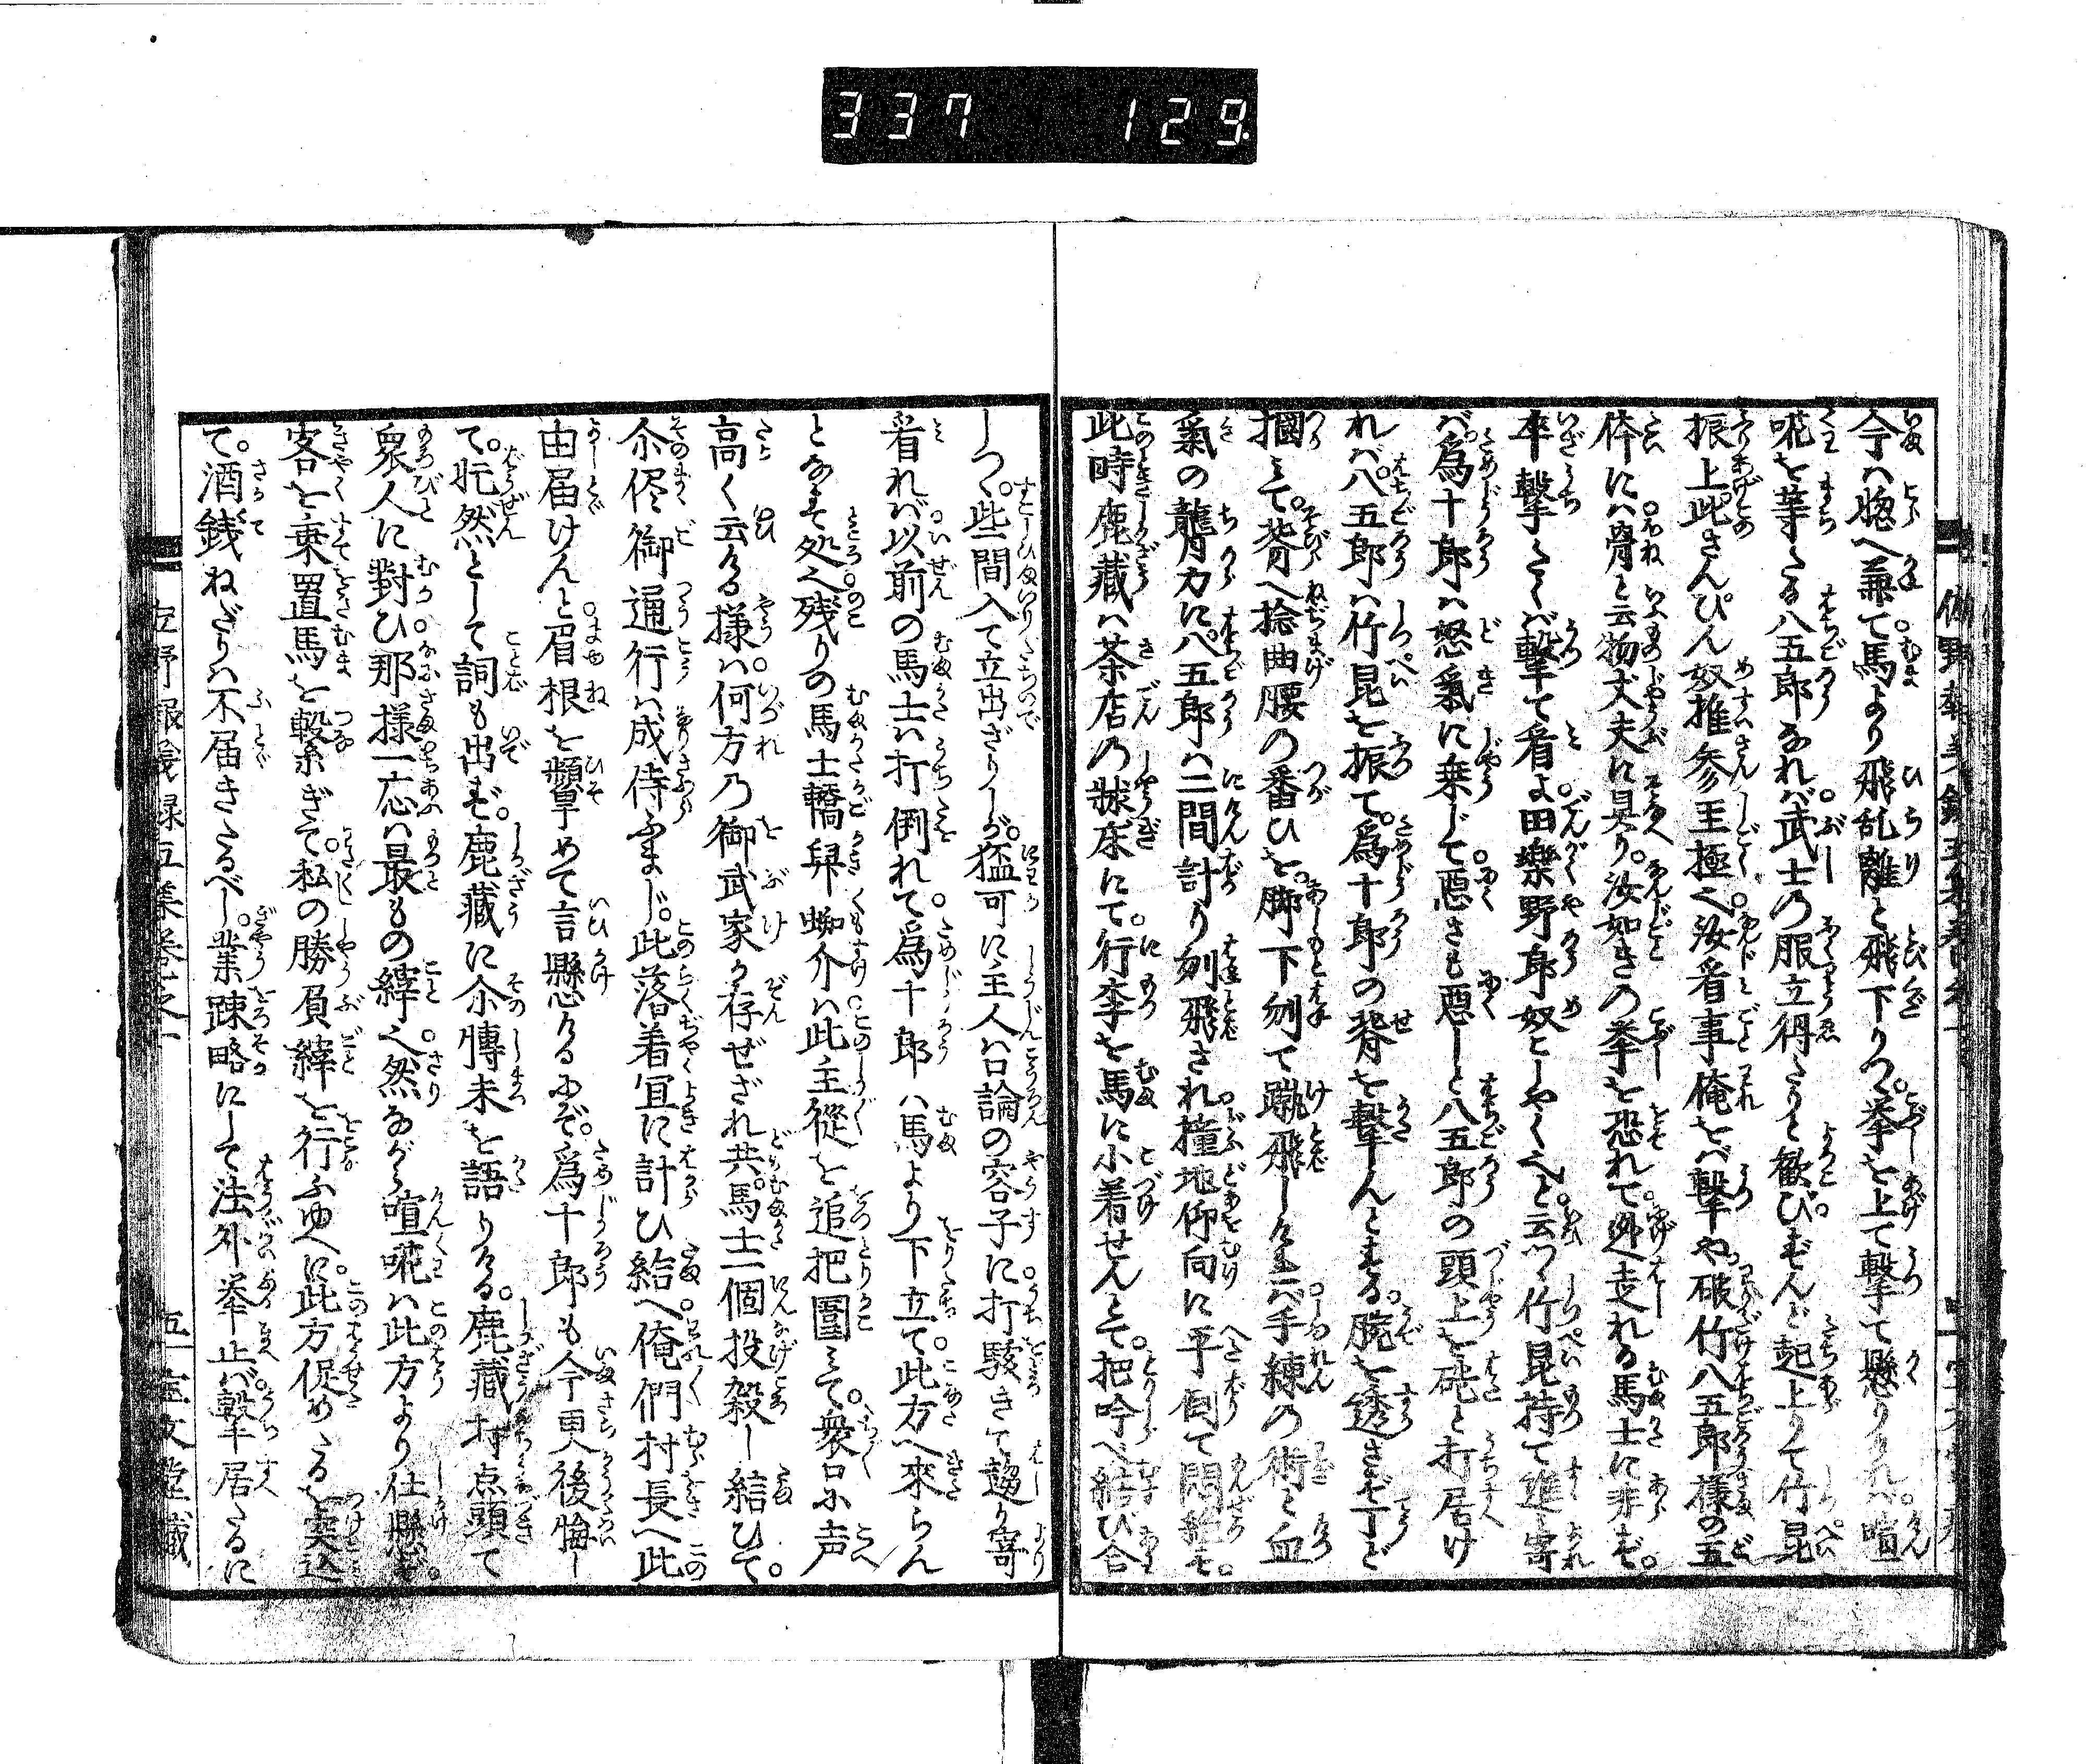 337 129.
今ハ惚へ兼て馬より飛乱離と飛下りつゝ。拳を上て撃て懸りけれバ。喧
嘩を等たる八五郎なれバ。武士の服立得たりと歓び。ずんど起上りて竹昆
振上。此さんぴん奴推参至極之。汝看事俺をバ撃や破竹八五郎様の五
体にハ。骨と云物丈夫に具り。汝如きの拳を恐れて。迯走れる馬士に非ず。
卒撃たくバ撃て看よ。田樂野郎奴としやくへと。云つゝ竹昆持て進寄
バ。為十郎ハ怒氣に乗じて。悪さも悪しと八五郎の頭上を砣と打居け
れバ。八五郎ハ竹昆を振て。為十郎の脊を撃んとする。腕を透さず丁ど
摑ミて。脊へ捻曲腰の番ひを。脚下刎て蹴飛しけれバ。手練の術と血
氣の膂力に。八五郎ハ二間計り刎飛され。撞地仰向に平倒て悶絶す。
此時鹿藏ハ茶店の牀床にて。行李を馬に小着せんとて。把吟べ結び合
しつゝ。些間入て立出ざりしが。猛可に主人ハ口論の容子に。打駭きて趨り寄
看れバ。以前の馬士ハ打倒れて。為十郎ハ馬より下立て。此方へ來らん
となす処へ。残りの馬士轎舁蜘介ハ。此主從を追把圍ミて。衆口に声
高く云ける様ハ。何方の御武家か存ぜざれ共。馬士一個投殺し給ひて。
尒侭御通行ハ成侍ふまじ。此落着宜に計ひ給へ。俺們村長へ此
由届けんと。眉根を顰めて言懸けるにぞ。為十郎も今更後悔し
て。㤞然として詞も出ず。鹿藏に尒慱末を語りける。鹿藏打点頭て
衆人に對ひ。那様一応ハ最もの縡之。然ながら喧嘩ハ此方より仕懸ず。
客を乗置馬を繋ぎて。私の勝負縡を行ふゆへに。此方促めたるを突込
て。酒銭ねざりハ不届きたるべし。業踈略にして法外挙止バ。撃居たるに